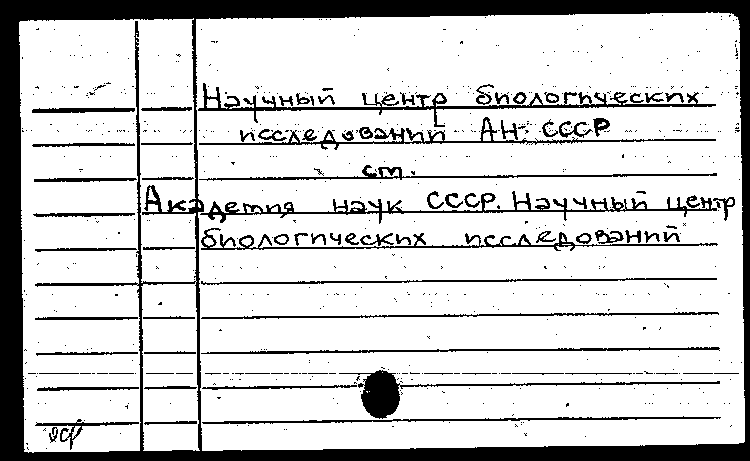 Научный центр биологических
исследований АН СССР
см.
Академия наук СССР. Научный центр
биологических исследований